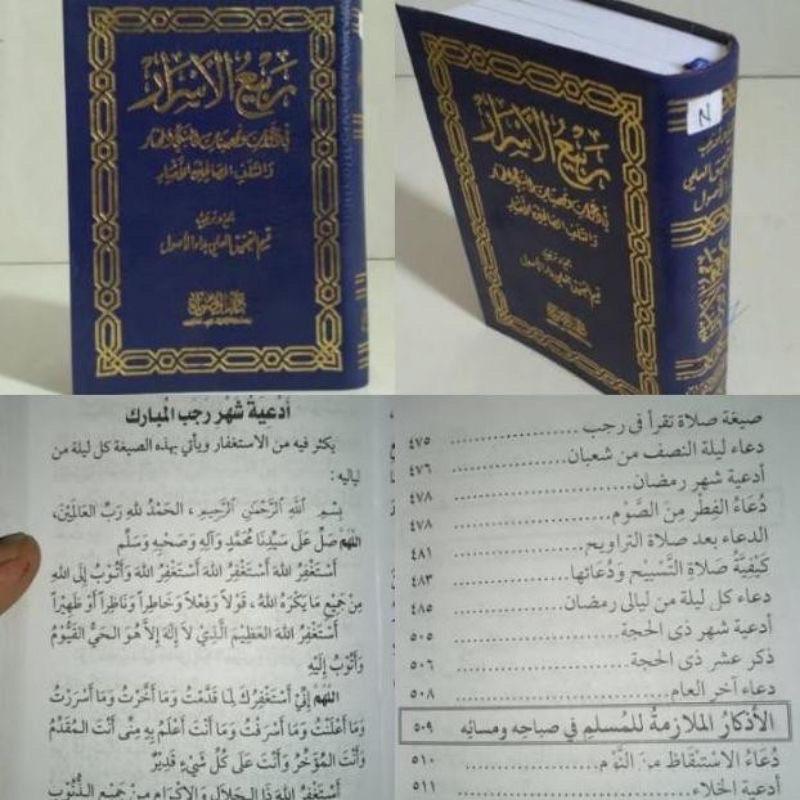 ربيع الأسرار
والسلف الصالحين الأخيار
جمع وترتيب
قسم التحقيق العلمي بدار الأصول
ربيع الأسرار
والسلف الصالحين الأخيار
جمع وترتيب
قسم التحقيق العلمي بدار الأصول
N
أدعية شهر رجب المبارك
يكثر فيه من الاستغفار ويأتي بهذه الصيغة كل ليلة من
لياليه:
بِسْمِ اللَّهِ الرَّحْمَنِ الرَّحِيمِ، الحَمْدُ للهِ رَبِّ العَالَمِيْنَ،
اللَّهُمَّ صَلِّ عَلَى سَيِّدِنَا مُحَمَّدٍ وَآلِهِ وَصَحْبِهِ وَسَلَّمَ
أَسْتَغْفِرُ اللهَ أَسْتَغْفِرُ اللهَ أَسْتَغْفِرُ اللهَ وَأَتُوْبُ إِلَى اللهِ
مِنْ جَمِيْعِ مَا يَكْرَهُ اللهُ، قَوْلاً وَفِعْلاً وَخَاطِراً وَنَاظِراً أَوْ ظَهِيْراً
أَسْتَغْفِرُ اللهَ العَظِيْمَ الَّذِيْ لاَ إِلَهَ إِلاَّ هُوَ الحَيُّ القَيُّوْمُ
وَأَتُوْبُ إِلَيْهِ
اللَّهُمَّ إِنِّيْ أَسْتَغْفِرُكَ لِمَا قَدَّمْتُ وَمَا أَخَّرْتُ وَمَا أَسْرَرْتُ
وَمَا أَعْلَنْتُ وَمَا أَسْرَفْتُ وَمَا أَنْتَ أَعْلَمُ بِهِ مِنِّى أَنْتَ المُقَدِّمُ
وَأَنْتَ المُؤَخِّرُ وَأَنْتَ عَلَى كُلِّ شَيْءٍ قَدِيْرٌ
أَسْتَغْفِرُ اللهَ ذَا الجَلاَلِ وَالإِكْرَامِ مِنْ جَمِيْعِ الذُّنُوْبِ
صيغة صلاة تقرأ فى رجب ................ ٤٧٥
دعاء ليلة النصف من شعبان ................ ٤٧٦
أدعية شهر رمضان ................ ٤٧٨
دُعَاءُ الفِطْرِ مِنَ الصَّوْمِ ................ ٤٧٨
الدعاء بعد صلاة التراويح ................ ٤٨١
كَيْفِيَّةُ صَلاَةِ التَّسْبِيْحِ وَدُعَائِهَا ................ ٤٨٣
دعاء كل ليلة من ليالى رمضان ................ ٤٨٥
أدعية شهر ذى الحجة ................ ٥٠٥
ذكر عشر ذى الحجة ................ ٥٠٦
دعاء آخر العام ................ ٥٠٨
الأَذكَارُ المُلاَزِمَةُ لِلمُسلِمِ فِي صباحِهِ ومسائِهِ ٥٠٩
دُعَاءُ الاِسْتِيْقَاظِ مِنَ النَّوْمِ ................ ٥١٠
أدعية الخلاء ................ ٥١١